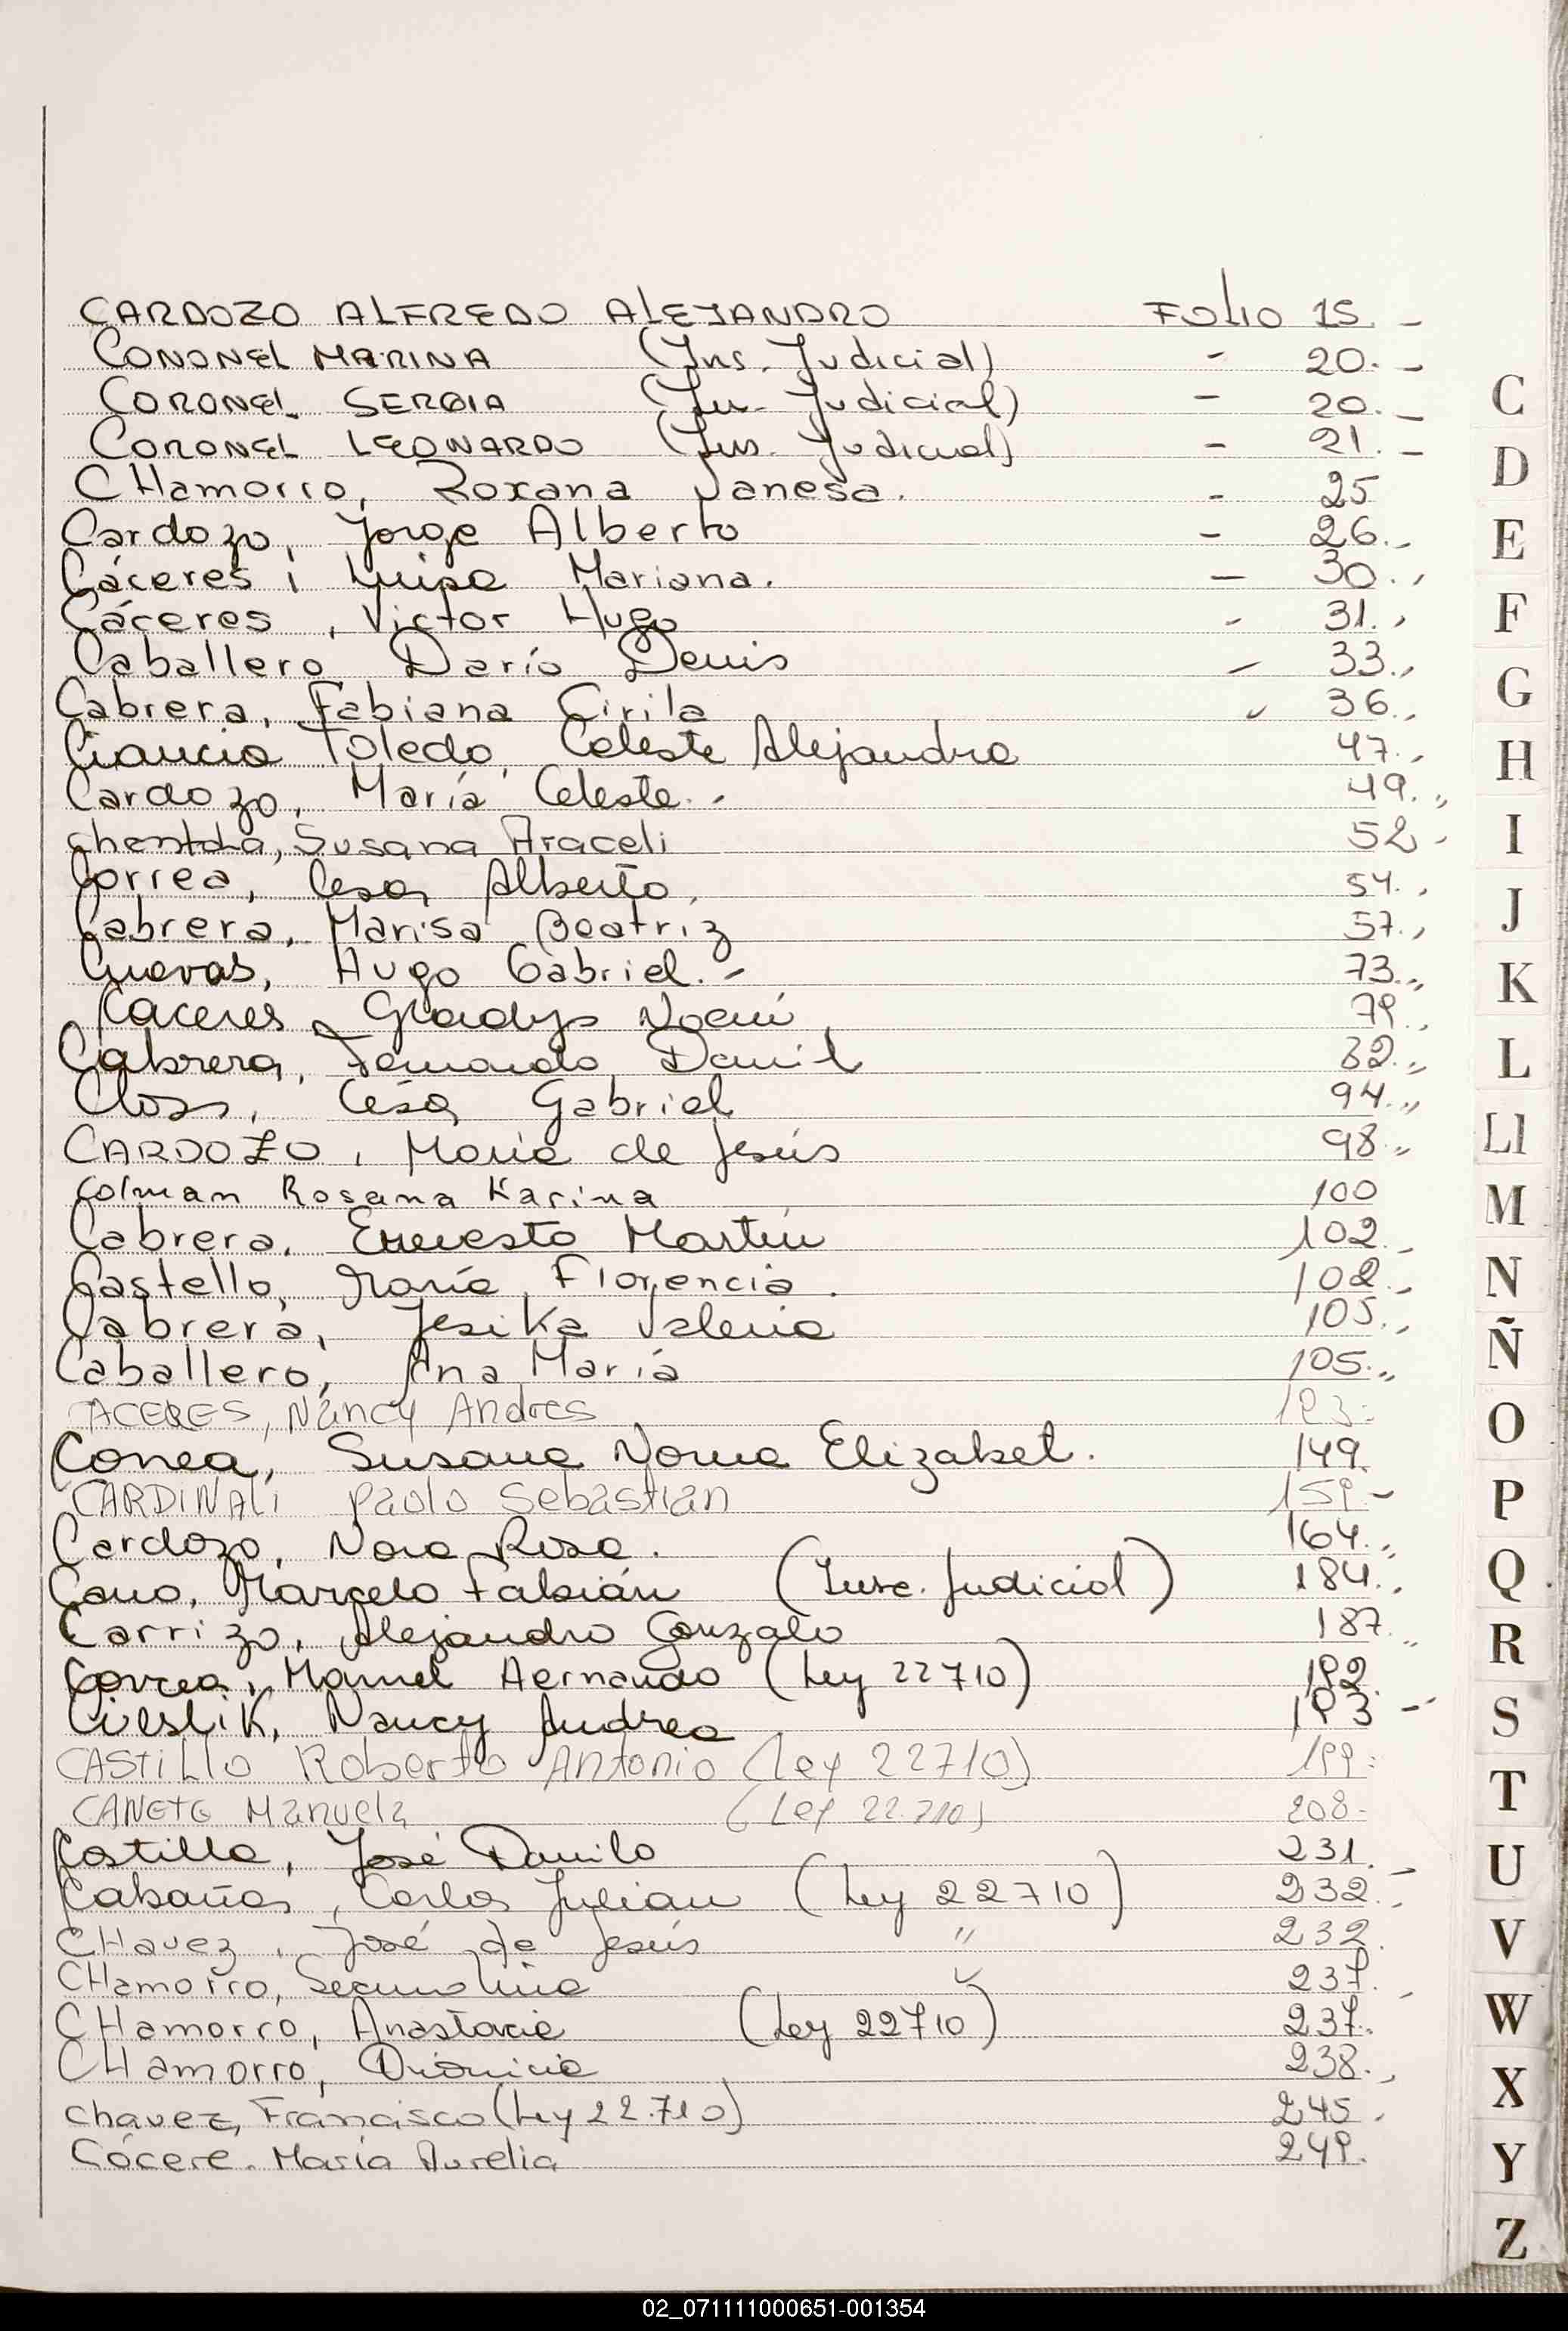 CARDOZO ALFREDO ALEJANDRO FOLIO 15. -
CONONEL MARINA (Ins. Judicial) - 20. -
CORONEL SERGIA (In. Judicial) - 20. -
CORONEL LEONARDO (Ins. Judicial) - 21. -
CHamorro, Roxana Vanesa. - 25
Cardozo, Jorge Alberto - 26.-
Cáceres, Luisa Mariana. - 30.,
Cáceres, Victor Hugo - 31.,
Caballero Darío Denis - 33.,
Cabrera, Fabiana Cirila 36.,
Ciancio Toledo, Celeste Alejandra 47.,
Cardozo, María Celeste.- 49.,,
Susana Araceli 52-
Correa, Cesar Alberto, 54.,
Cabrera, Marisa Beatriz 57.,
Cuevas, Hugo Gabriel.- 73.,,
Caceres, Gladys Noemí 79.,
Cabrera, Fernando Daniel 82.,,
Closs, César Gabriel 94.,,
CARDOZO, María de Jesús 98.,,
Colman Rosana Karina 100
Cabrera, Ernesto Martín 102.-
Castello, María Florencia. 102.-
Cabrera, Jesika Valeria 105.,
Caballero, Ana María 105.,,
CACERES, Nancy Andres 193-
Correa, Susana Norma Elizabet. 149.
CARDINALI Paolo Sebastián 159-
Cardozo, Nora Rosa. 164.,,
Cano, Marcelo Fabián (Insc. Judicial) 184.,
Carrizo, Alejandro Gonzalo 187.,,
Correa, Manuel Hernando (Ley 22710) 192.
Cieslik, Nancy Andrea 193 -
CASTILLO Roberto Antonio (Ley 22710) 199-
CANETE Manuela (Ley 22.710) 208-
Castilla, José Danilo 231.-
Cabañas, Carlos Julian (Ley 22710) 232.-
CHavez, José de Jesús " 232.
CHamorro, Secundina " 237.
CHamorro, Anastacia (Ley 22710) 237.
CHamorro, Dionicia 238.,
Chavez, Francisco (Ley 22.710) 245.
Cócere. María Aurelia 249.
C
D
E
F
G
H
I
J
K
L
Ll
M
N
Ñ
O
P
Q
R
S
T
U
V
W
X
Y
Z
02_071111000651-001354